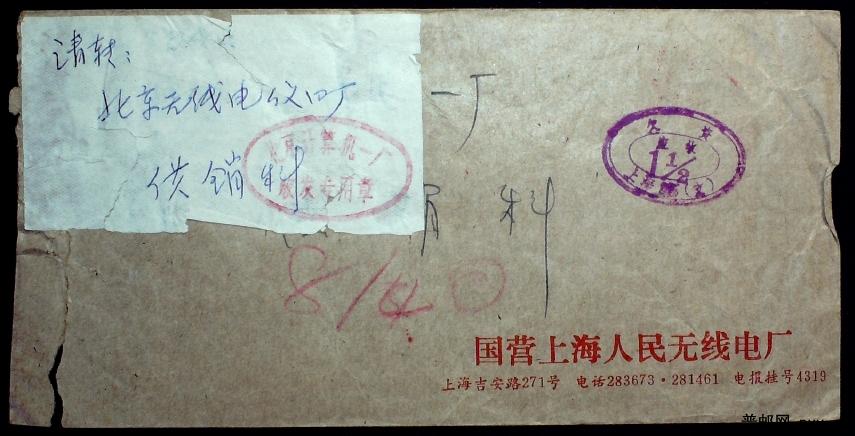 请转:
北京无线电仪四厂
供销科
北京计算机一厂
收发专用章
一厂
科
8/40
1/2
国营上海人民无线电厂
上海吉安路271号 电话283673·281461 电报挂号4319
普邮网